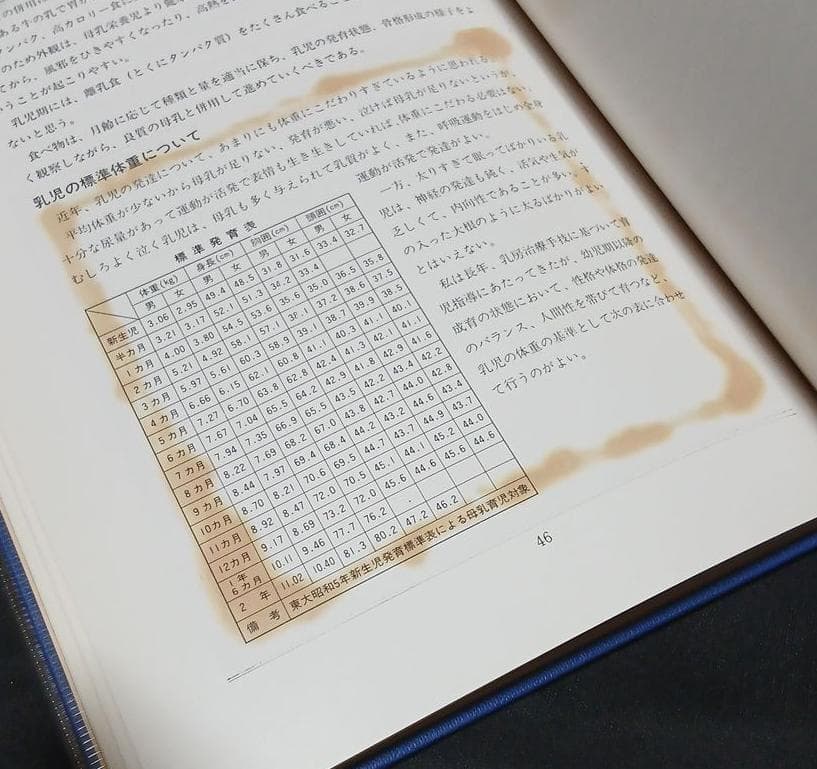 ある牛の乳で
タンパク、高カロリー食に
のため外観は、母乳栄養児より
てから、風邪をひきやすくなったり、高熱を
うことが起こりやすい。
乳児期には、離乳食（とくにタンパク質）をたくさん食べるこ
ないと思う。
食べ物は、月齢に応じて種類と量を適当に保ち、乳児の発育状態、骨格形成の様子をよ
く観察しながら、良質の母乳と併用して進めていくべきである。
乳児の標準体重について
近年、乳児の発達について、あまりにも体重にこだわりすぎているように思われる。
平均体重が少ないから母乳が足りない、発育が悪い、泣けば母乳が足りないというが、
十分な尿量があって運動が活発で表情も生き生きしていれば、体重にこだわる必要はない。
むしろよく泣く乳児は、母乳も多く与えられて乳質がよく、また、呼吸運動をはじめ全身
運動が活発で発達がよい。
一方、太りすぎて眠ってばかりいる乳
児は、神経の発達も鈍く、活気や生気が
乏しくて、内向性であることが多い。す
の入った大根のように太るばかりがよい
とはいえない。
私は長年、乳房治療手技に基づいて育
児指導にあたってきたが、幼児期以降の
成育の状態において、性格や体格の発達
のバランス、人間性を帯びて育つなど、
乳児の体重の基準として次の表に合わせ
て行うのがよい。
標準発育表
体重(kg) 身長(cm) 胸囲(cm) 頭囲(cm)
男 女 男 女 男 女 男 女
新生児 3.06 2.95 49.4 48.5 31.8 31.6 33.4 32.7
半カ月 3.21 3.17 52.1 51.3 34.2 33.4
1カ月 4.00 3.80 54.5 53.6 35.6 35.0 36.5 35.8
2カ月 5.21 4.92 58.1 57.1 37.2 38.6 37.5
3カ月 5.97 5.61 60.3 58.9 39.1 38.7 39.9 38.5
4カ月 6.66 6.15 62.1 60.8 41.1 40.3 41.1 40.1
5カ月 7.27 6.70 63.8 62.8 42.4 41.3 42.1 41.1
6カ月 7.67 7.04 65.5 64.2 42.9 41.8 42.9 41.6
7カ月 7.94 7.35 66.9 65.5 43.5 42.2 43.4 42.2
8カ月 8.22 7.69 68.2 67.0 43.8 42.7 44.0 42.8
9カ月 8.44 7.97 69.4 68.4 44.2 43.2 44.6 43.4
10カ月 8.70 8.21 70.6 69.5 44.7 43.7 44.9 43.7
11カ月 8.92 8.47 72.0 70.5 45.1 44.1 45.2 44.0
12カ月 9.17 8.69 73.2 72.0 45.6 44.6 45.6 44.6
1年6カ月 10.11 9.46 77.7 76.2
2年 11.02 10.40 81.3 80.2 47.2 46.2
備考 東大昭和5年新生児発育標準表による母乳育児対象
46